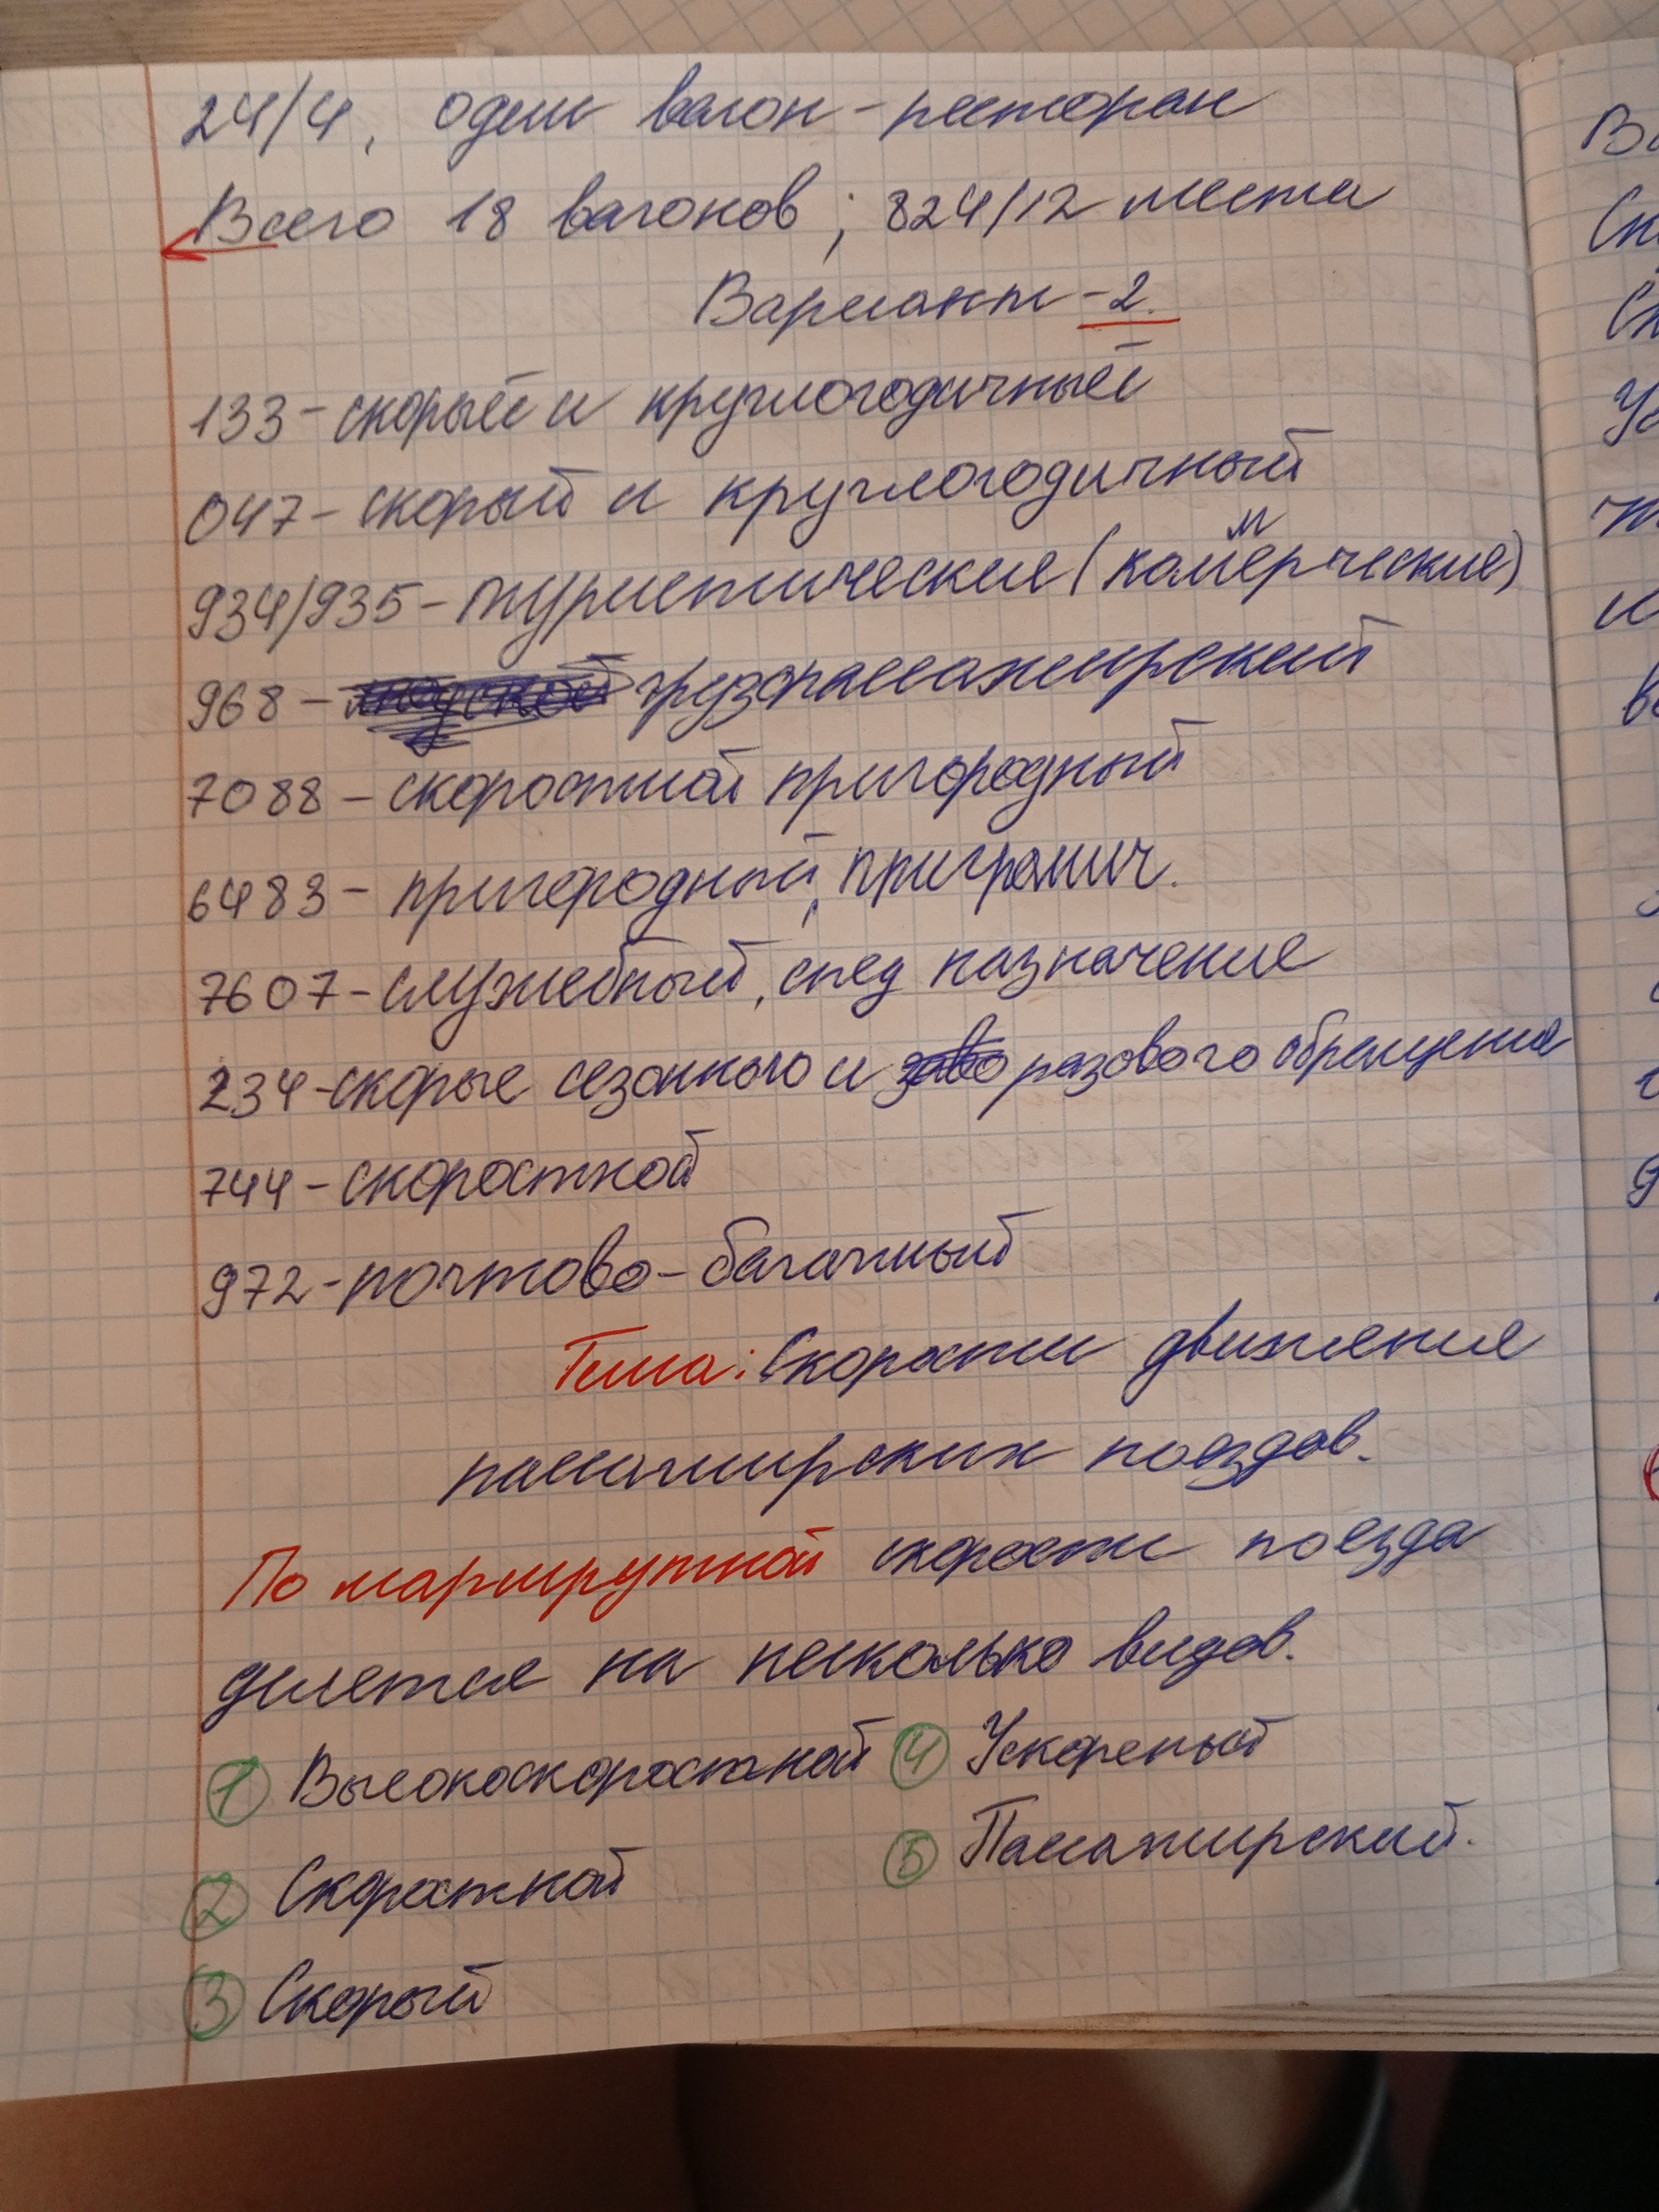 24/4, один вагон-ресторан
Всего 18 вагонов; 824/12 места
Вариант-2.
133-скорый и круглогодичный
047-скорый и круглогодичный
934/935-туристические (комерческие)
м
968- грузопассажирский
7088-скоростной пригородный
6483-пригородный, приграмич.
7607-служебный, спец назначение
234-скорые сезонного и разового обращения
744-скоростной
972-почтово-багажный
Тема: Скорости движения
пассажирских поездов.
По маршрутной скорости поезда
делется на несколько видов.
① Высокоскоростной ④ Ускореный
② Скоростной ⑤ Пассажирский.
③ Скорый